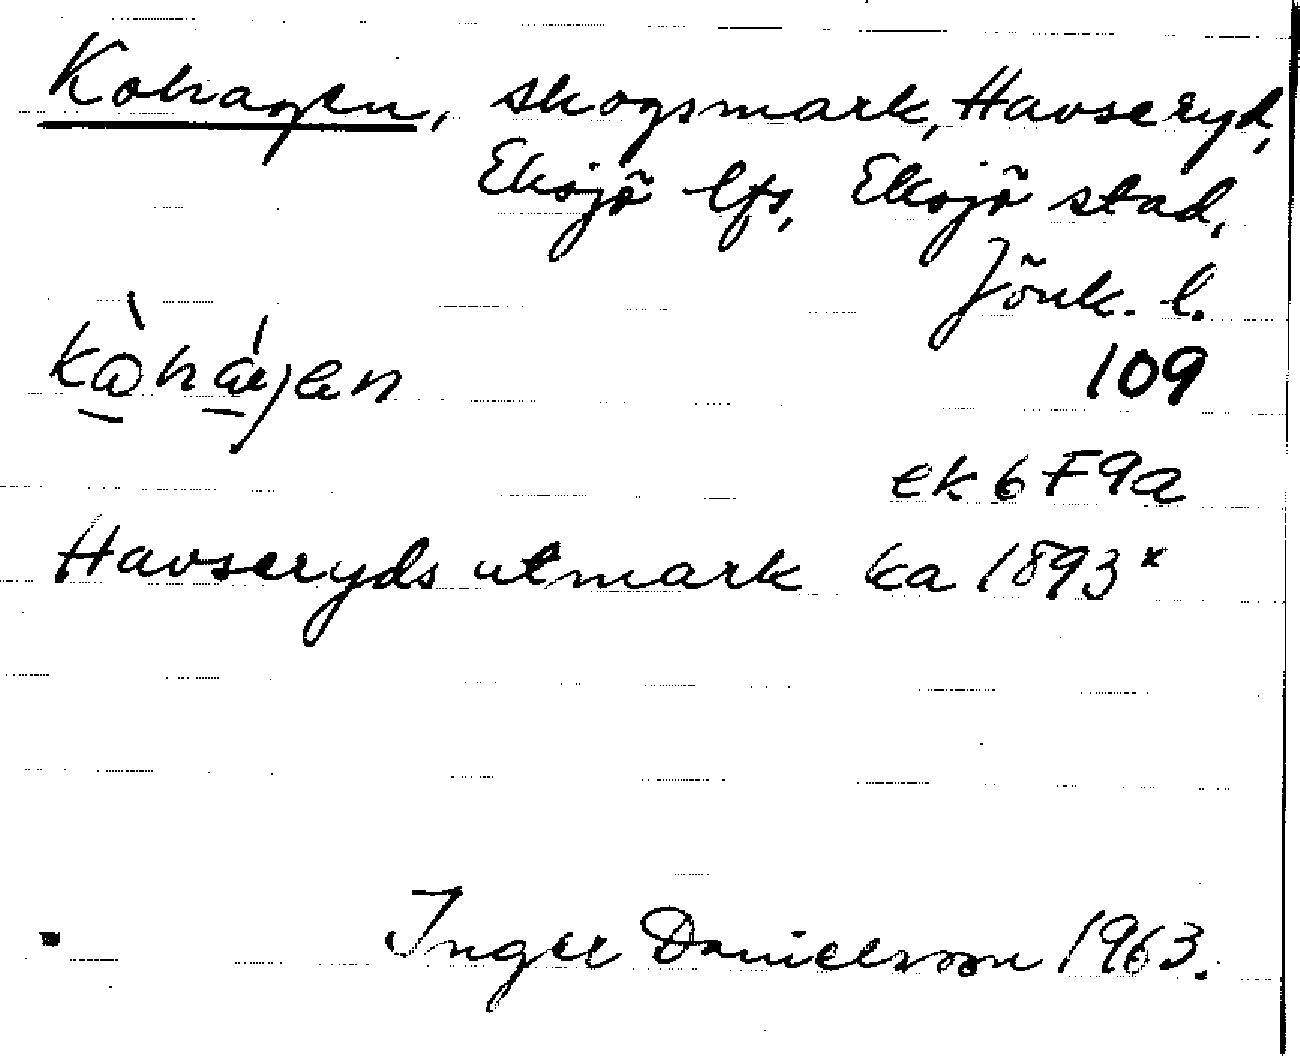 Kohagen, skogsmark, Havseryd,
Eksjö lfs, Eksjö stad,
Jönk. l.
109
ek 6 F 9a
Havseryds utmark ka 1893ˣ
Inger Danielsson 1963.